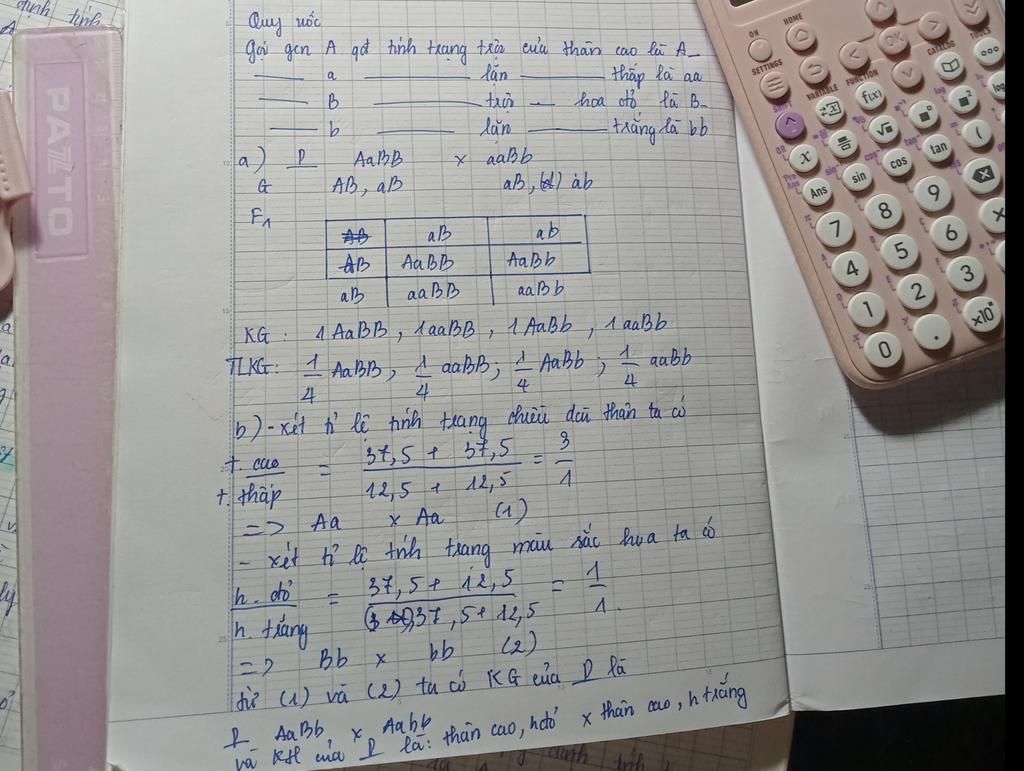 Quy ước
Gọi gen A qđ tính trạng trội của thân cao là A_
a lặn thấp là aa
B trội hoa đỏ là B-
b lặn trắng là bb
a) P AaBB x aaBb
G AB, aB aB, ab
F1
AB aB ab
AB AaBB AaBb
aB aaBB aaBb
KG: 1 AaBB, 1aaBB, 1 AaBb, 1 aaBb
TLKG: 1/4 AaBB, 1/4 aaBB; 1/4 AaBb; 1/4 aaBb
b) - xét tỉ lệ tính trạng chiều dài thân ta có
t. cao / t. thấp = 37,5 + 37,5 / 12,5 + 12,5 = 3/1
=> Aa x Aa (1)
- xét tỉ lệ tính trạng màu sắc hoa ta có
h. đỏ / h. trắng = 37,5 + 12,5 / 37,5 + 12,5 = 1/1.
=> Bb x bb (2)
từ (1) và (2) ta có KG của P là
P AaBb x Aabb
và KH của P là: thân cao, h đỏ x thân cao, h trắng
PAZTO
ON
HOME
SETTINGS
OK
CATALOG
TOOLS
SHIFT
VARIABLE
FUNCTION
f(x)
x
sin cos tan (
Ans
7 8 9
4 5 6 ×
1 2 3
0 . ×10